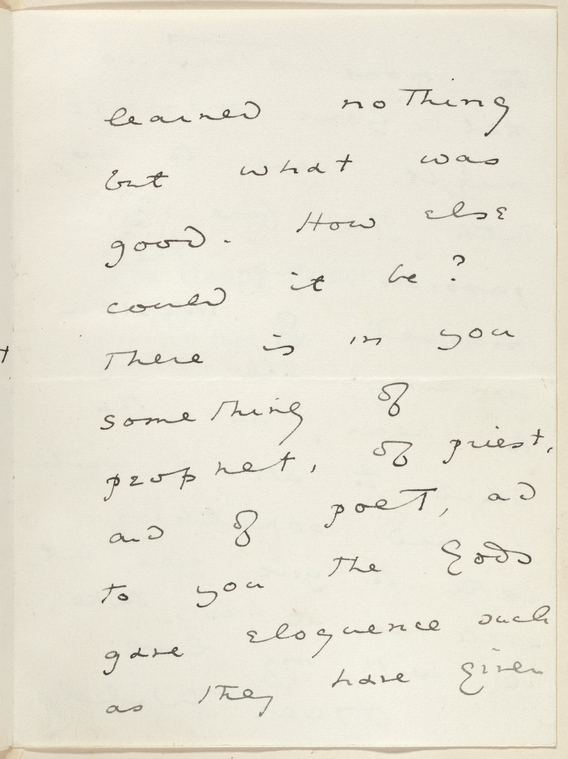 learned nothing
but what was
good. How else
could it be?
There is in you
something of
prophet, of priest,
and of poet, ad
to you the Gods
gave eloquence such
as they have given